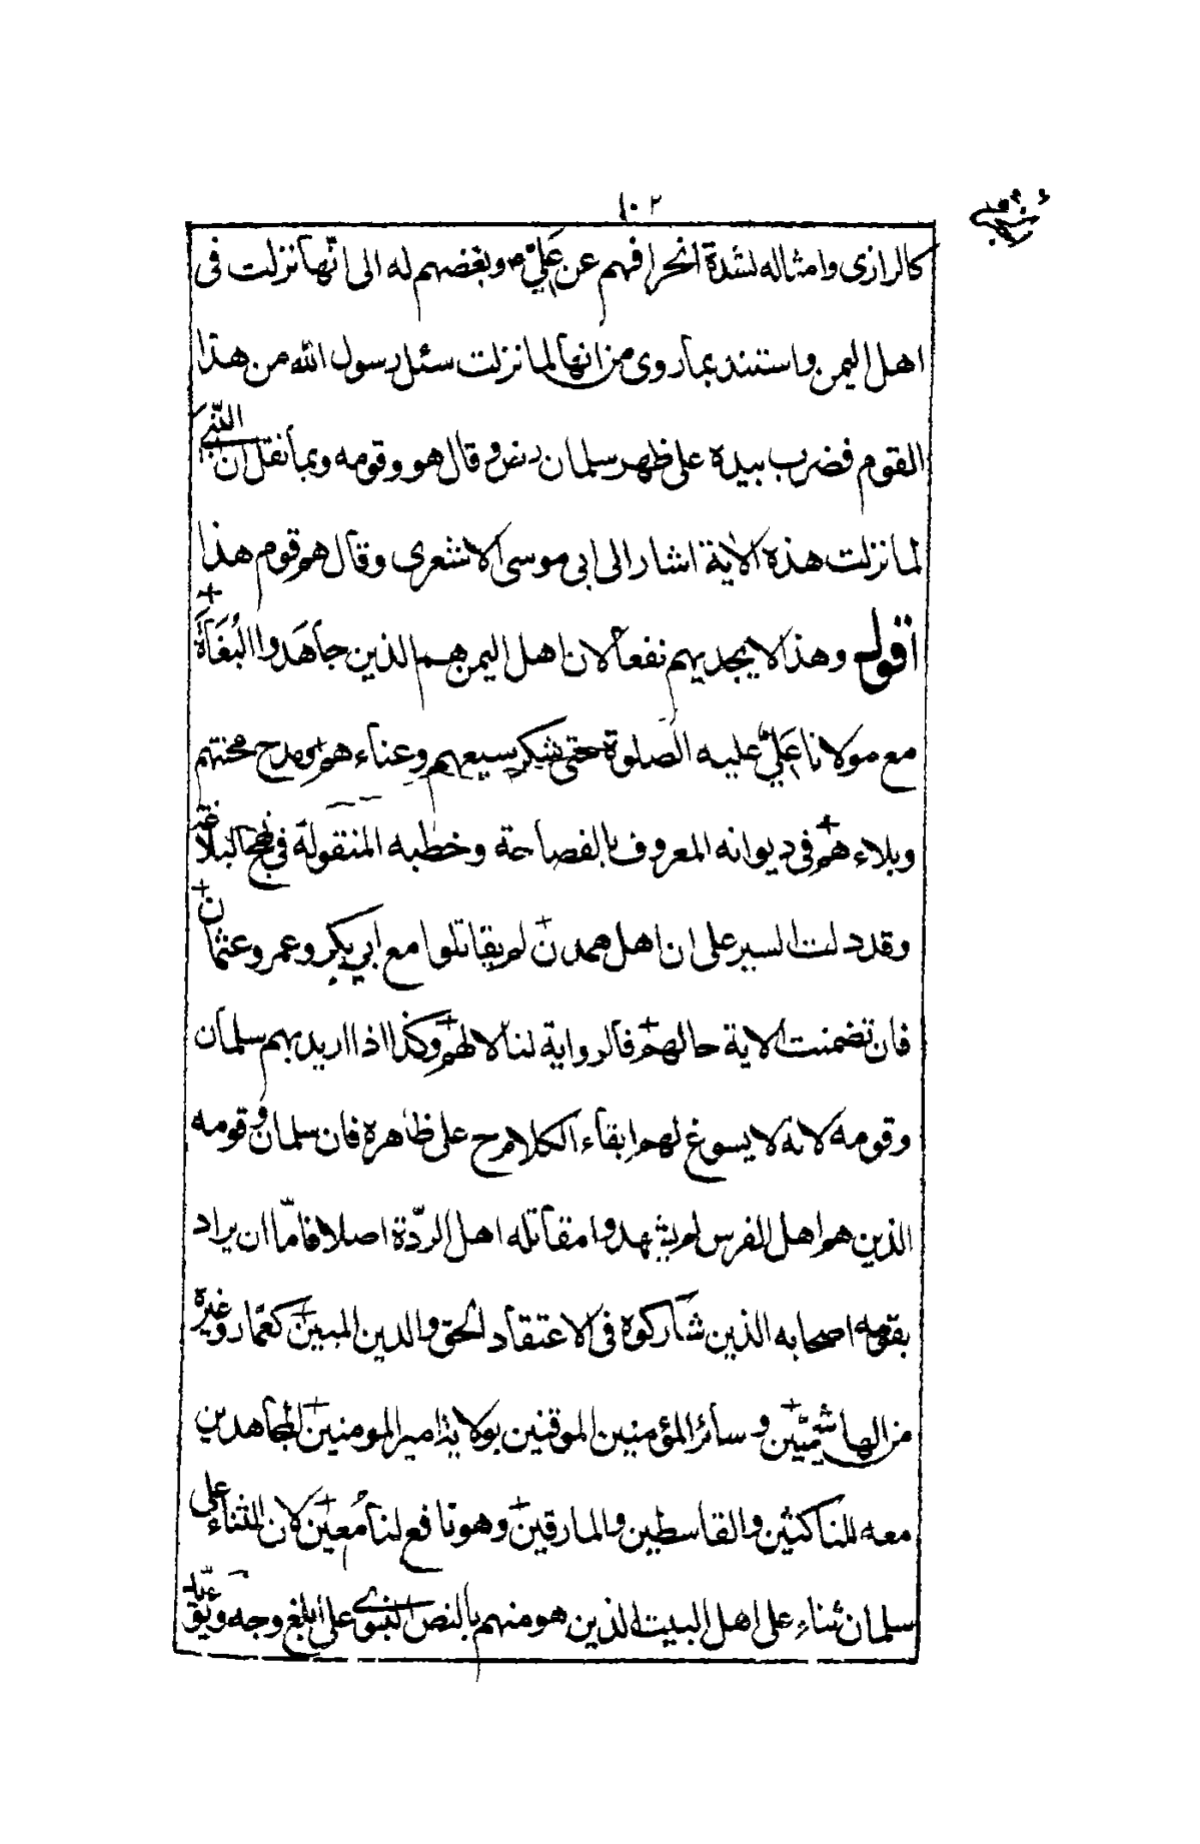 ١٠٢
كالرازى وامثاله لشدة انحرافهم عن علىّ ع وبغضهم له الى انّها نزلت فى
اهل اليمن واستند بما روى من انها لما نزلت سئل رسول الله من هذا
القوم فضرب بيده على ظهر سلمان رض وقال هو وقومه وبما نقل ان النّبى
لما نزلت هذه الاية اشار الى ابى موسى الاشعرى وقال هم قوم هذا
اقول وهذا لا يجديهم نفعا لان اهل اليمن هم الذين جاهَدوا البُغَاةَ
مع مولانا عَلىّ عليه الصلوة حتى شكر سيعهم وعناءهم ومدح محنتهم
وبلاءهم فى ديوانه المعروف بالفصاحة وخطبه المنقولة فى نهج البلاغة
وقد دلت السير على ان اهل همدن لم يقاتلوا مع ابى بكر وعمر وعثمان
فان تضمنت الاية حالهم فالرواية لنا لا لهم وكذا اذا اريد بهم سلمان
وقومه لانه لا يسوغ لهم ابقاء الكلام ح على ظاهره فان سلمان وقومه
الذين هم اهل الفرس لم يشهدوا مقاتله اهل الردّة اصلا فامّا ان يراد
بقومه اصحابه الذين شاركوه فى الاعتقاد الحق والدين المبين كعمّار وغيره
من الهاشميّين و سائر المؤمنين الموقنين بولاية امير المومنين المجاهدين
معه للناكثين والقاسطين والمارقين وهو نافع لنا مُعين لان الثناء على
سلمان ثناء على اهل البيت الذين هو منهم بالنص النبوى على ابلغ وجه